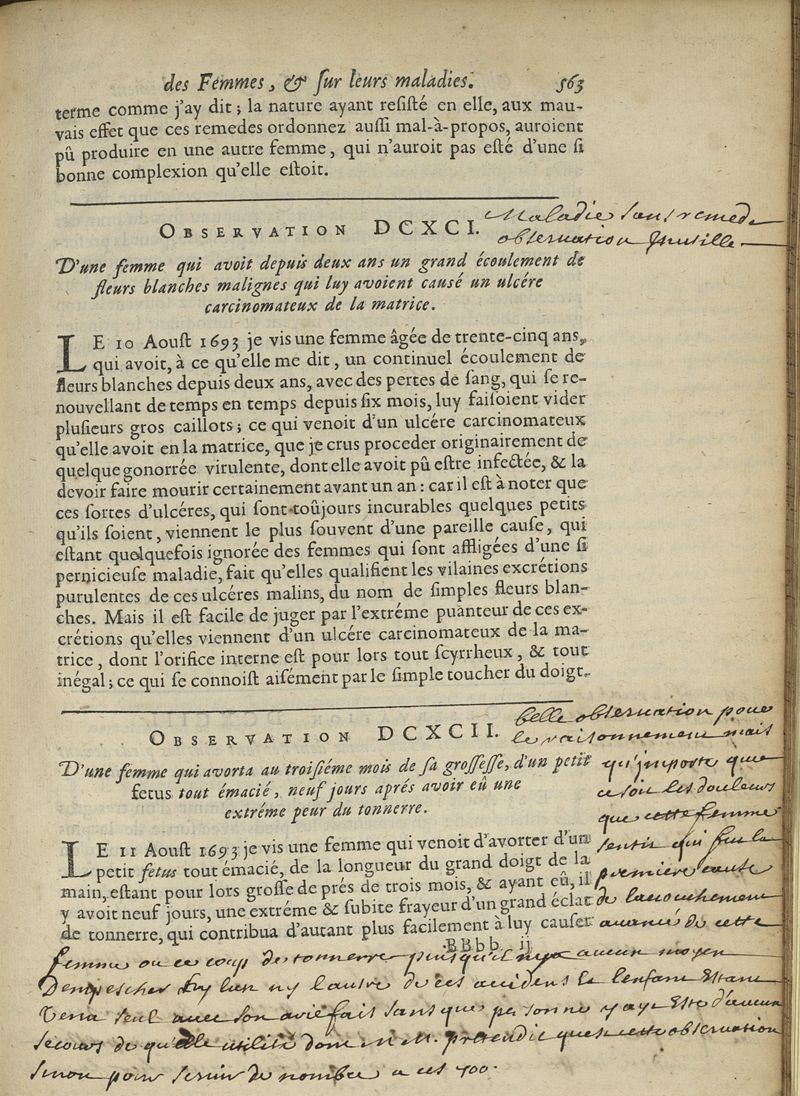 des Femmes, & ſur leurs maladies. 563
terme comme j'ay dit ; la nature ayant reſiſté en elle, aux mau-
vais effet que ces remedes ordonnez auſſi mal-à-propos, auroient
pû produire en une autre femme, qui n'auroit pas eſté d'une ſi
bonne complexion qu'elle eſtoit.
Maladie sans remede
OBSERVATION DCXCI.
observation Inutille
D'une femme qui avoit depuis deux ans un grand écoulement de
fleurs blanches malignes qui luy avoient causé un ulcére
carcinomateux de la matrice.
LE 10 Aouſt 1693 je vis une femme âgée de trente-cinq ans,
qui avoit, à ce qu'elle me dit, un continuel écoulement de
fleurs blanches depuis deux ans, avec des pertes de ſang, qui ſe re-
nouvellant de temps en temps depuis ſix mois, luy faiſoient vider
pluſieurs gros caillots ; ce qui venoit d'un ulcére carcinomateux
qu'elle avoit en la matrice, que je crus proceder originairement de
quelque gonorrée virulente, dont elle avoit pû eſtre infectée, & la
devoir faire mourir certainement avant un an : car il eſt à noter que
ces ſortes d'ulcéres, qui ſont toûjours incurables quelques petits
qu'ils ſoient, viennent le plus ſouvent d'une pareille cauſe, qui
eſtant quelquefois ignorée des femmes qui ſont affligées d'une ſi
pernicieuſe maladie, fait qu'elles qualifient les vilaines excrétions
purulentes de ces ulcéres malins, du nom de ſimples fleurs blan-
ches. Mais il eſt facile de juger par l'extréme puanteur de ces ex-
crétions qu'elles viennent d'un ulcére carcinomateux de la ma-
trice, dont l'orifice interne eſt pour lors tout ſcyrrheux, & tout
inégal ; ce qui ſe connoiſt aiſément par le ſimple toucher du doigt.
belle observation pour
OBSERVATION DCXCII.
le raisonnement mais
D'une femme qui avorta au troiſiéme mois de ſa groſſeſſe, d'un petit
fetus tout émacié, neuf jours aprés avoir eu une
extréme peur du tonnerre.
qu'importe que
ce soit les douleurs
que cette femme
LE 11 Aouſt 1693 je vis une femme qui venoit d'avorter d'un
petit fetus tout émacié, de la longueur du grand doigt de la
main, eſtant pour lors groſſe de prés de trois mois, & ayant eu, il
y avoit neuf jours, une extréme & ſubite frayeur d'un grand éclat
de tonnerre, qui contribua d'autant plus facilement à luy cauſer
sentit qui fut la
premiere cause
de lacouchement
de cette
BBbb ij
femme ou ce coup de tonnerre puisqu'il aucun moyen
Dempescher ny lun ny lautre de ces accidens Et lenfant Estant
Venu seul avec son fait sans que personne y aye Esté d'aucun
secours de quelle utilité donc M. pretendic que cette observation
sinon pour servir de nombre a ces 700.